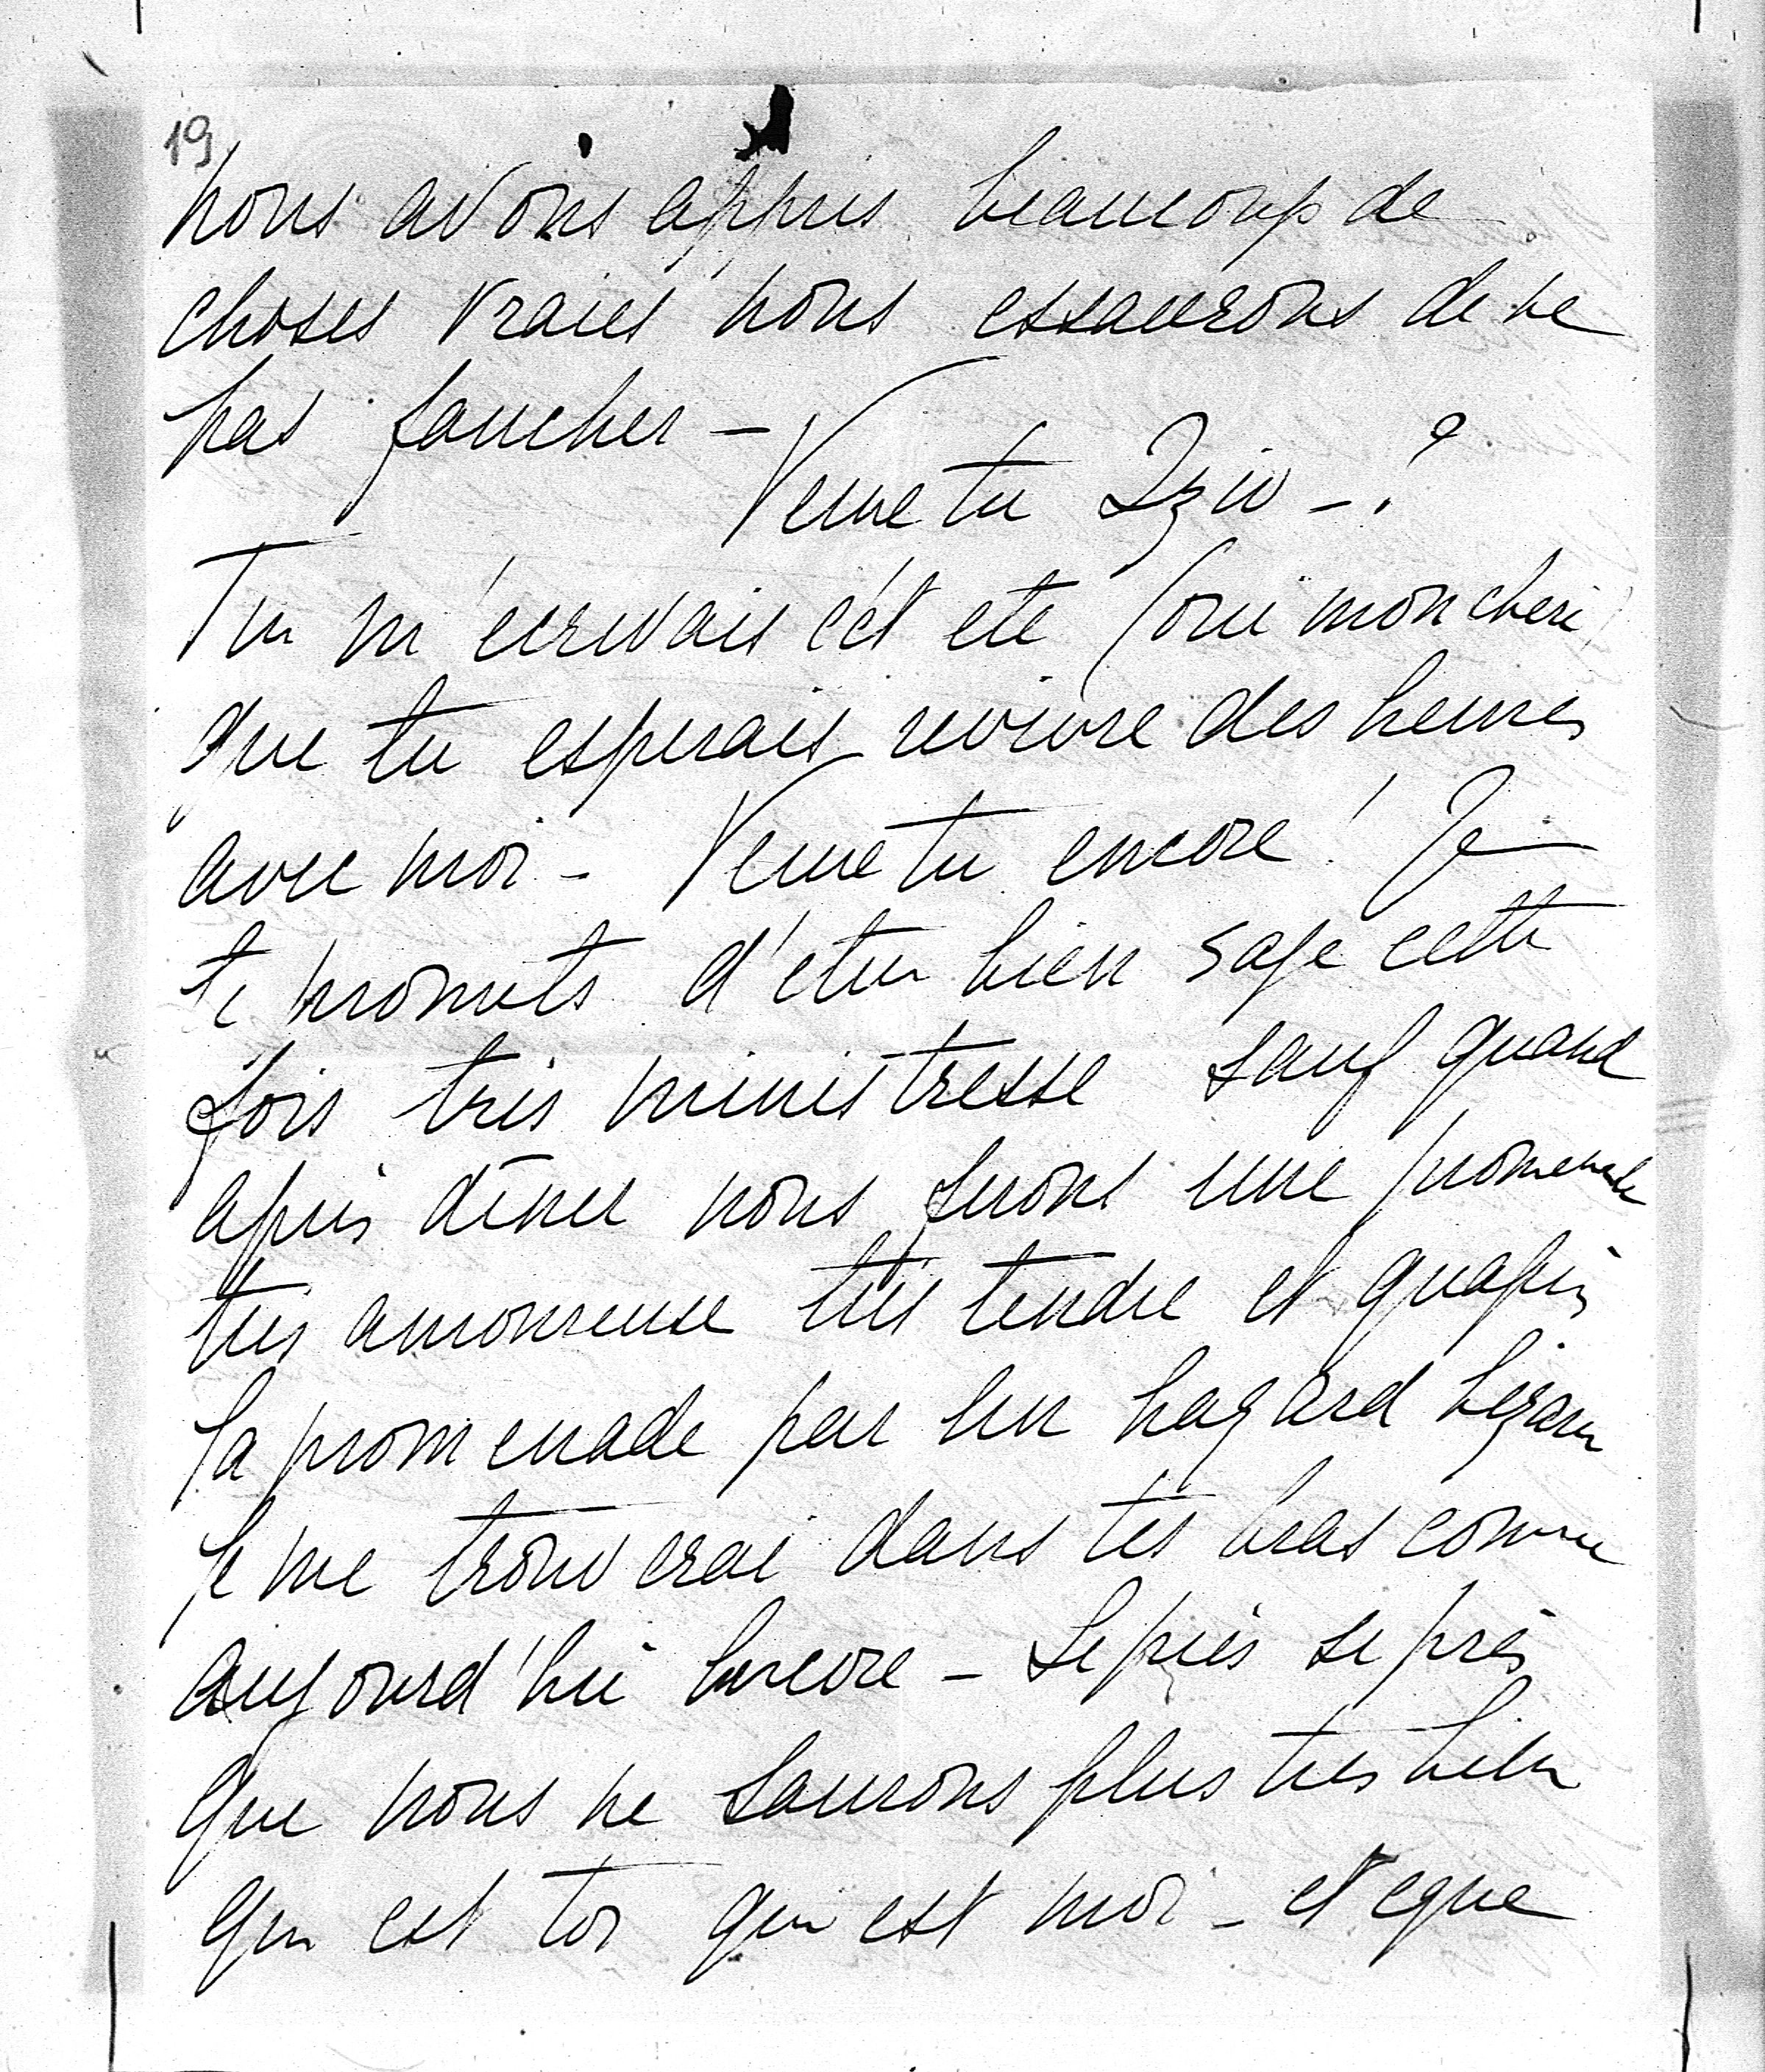 19
nous avons appris beaucoup de
choses vraies nous essaierons de ne
pas faucher –
Veux tu Izio – ?
Tu m'ecrivais cet ete (oui mon cheri)
que tu esperais revivre des heures
avec moi – Veux tu encore ! Je
te promets d'etre bien sage cette
fois tres ministresse sauf quand
apres diner nous ferons une promenade
tres amoureuse tres tendre et quapres
la promenade par un hazard bizare
je me trouverai dans tes bras comme
aujourd'hui encore – Si près si près
que nous ne saurons plus tres bien
qui est toi qui est moi – et que